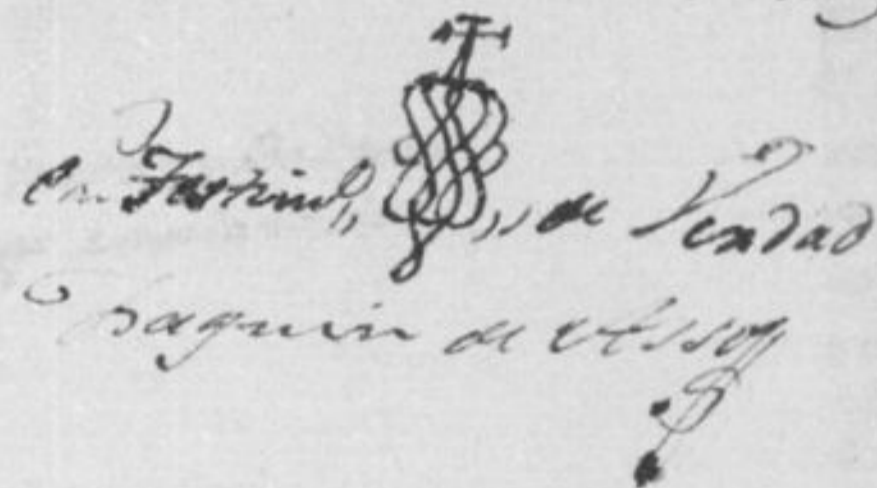 en Testim.o de Verdad
Joaquin de Asso